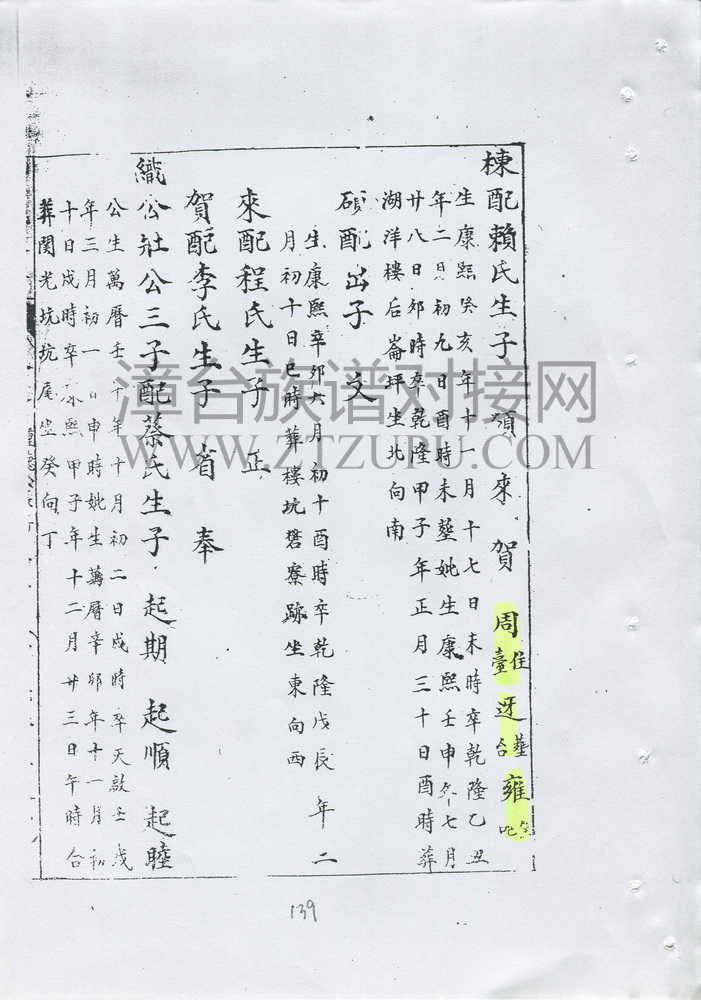 棟配賴氏生子 頎 來 賀 周住臺 迓葬台 雍
生康熙癸亥年十一月十七日未時卒乾隆乙丑
年二月初九日酉時未塟妣生康熙壬申年七月
廿八日卯時卒乾隆甲子年正月三十日酉時葬
湖洋樓后崙坪坐北向南
碩配 出子 文
生康熙辛卯六月初十酉時卒乾隆戊辰年二
月初十日巳時葬樓坑 寮跡坐東向西
來配程氏生子 正
賀配李氏生子 省 奉
織公 公三子配蔡氏生子 起期 起順 起睦
公生萬曆壬 年十月初二日戌時卒天啟壬戌
年三月初一日申時妣生萬曆辛卯年十一月初
十日戌時卒 熙甲子年十二月廿三日午時合
葬閏光坑坑尾坐癸向丁
漳台族谱对接网
WWW.ZTZUPU.COM
139